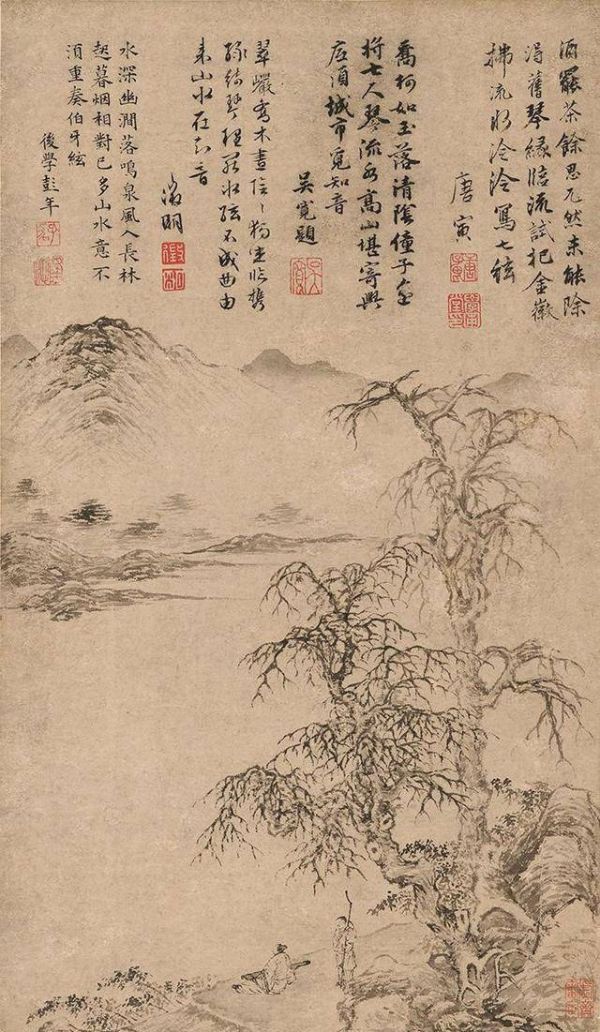 酒罷茶餘思兀然未能除
得舊琴緣臨流試把金徽
拂流水泠泠寫七絃
唐寅
喬柯如玉落清陰僮子自
將七尺琴流水高山堪寄興
底須城市覓知音
吳寬題
翠巖喬木晝愔〻獨坐攜
綠綺琴理罷冰弦不成曲由
來山水在知音
徵明
水深幽澗落鳴泉風入長林
起暮烟相對已多山水意不
須重奏伯牙絃
後學彭年